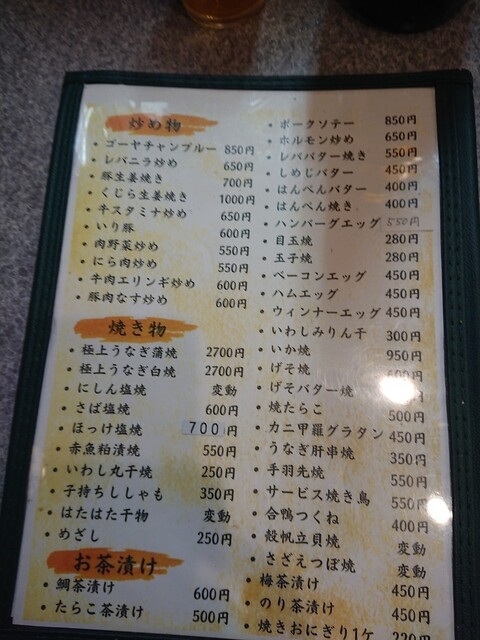 炒め物
・ゴーヤチャンプルー 850円
・レバニラ炒め 650円
・豚生姜焼き 700円
・くじら生姜焼き 1000円
・牛スタミナ炒め 650円
・いり豚 600円
・肉野菜炒め 550円
・にら肉炒め 550円
・牛肉エリンギ炒め 600円
・豚肉なす炒め 600円
焼き物
・極上うなぎ蒲焼 2700円
・極上うなぎ白焼 2700円
・にしん塩焼 変動
・さば塩焼 600円
・ほっけ塩焼 700円
・赤魚粕漬焼 550円
・いわし丸干焼 250円
・子持ちししゃも 350円
・はたはた干物 変動
・めざし 250円
お茶漬け
・鯛茶漬け 600円
・たらこ茶漬け 500円
・ポークソテー 850円
・ホルモン炒め 650円
・レババター焼き 550円
・しめじバター 450円
・はんぺんバター 400円
・はんぺん焼き 400円
・ハンバーグエッグ 550円
・目玉焼 280円
・玉子焼 280円
・ベーコンエッグ 450円
・ハムエッグ 450円
・ウィンナーエッグ 450円
・いわしみりん干 300円
・いか焼 950円
・げそ焼
・げそバター焼
・焼たらこ 500円
・カニ甲羅グラタン 450円
・うなぎ肝串焼 350円
・手羽先焼 550円
・サービス焼き鳥 550円
・合鴨つくね 400円
・殻帆立貝焼 変動
・さざえつぼ焼 変動
・梅茶漬け 450円
・のり茶漬け 450円
・焼きおにぎり1ケ